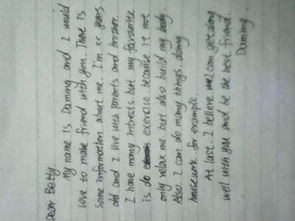 Dear Betty
My name is Daming and I would
love to make friend with you. There is
Some information about me. I'm xx years
old and I live with parents and brother.
I have many interests but my favourite
is do exercise because it not
only relax me but also build my body
Also. I can do many things. doing
housework for example.
At last. I believe we can get along
well with you and be the best friend.
Daming